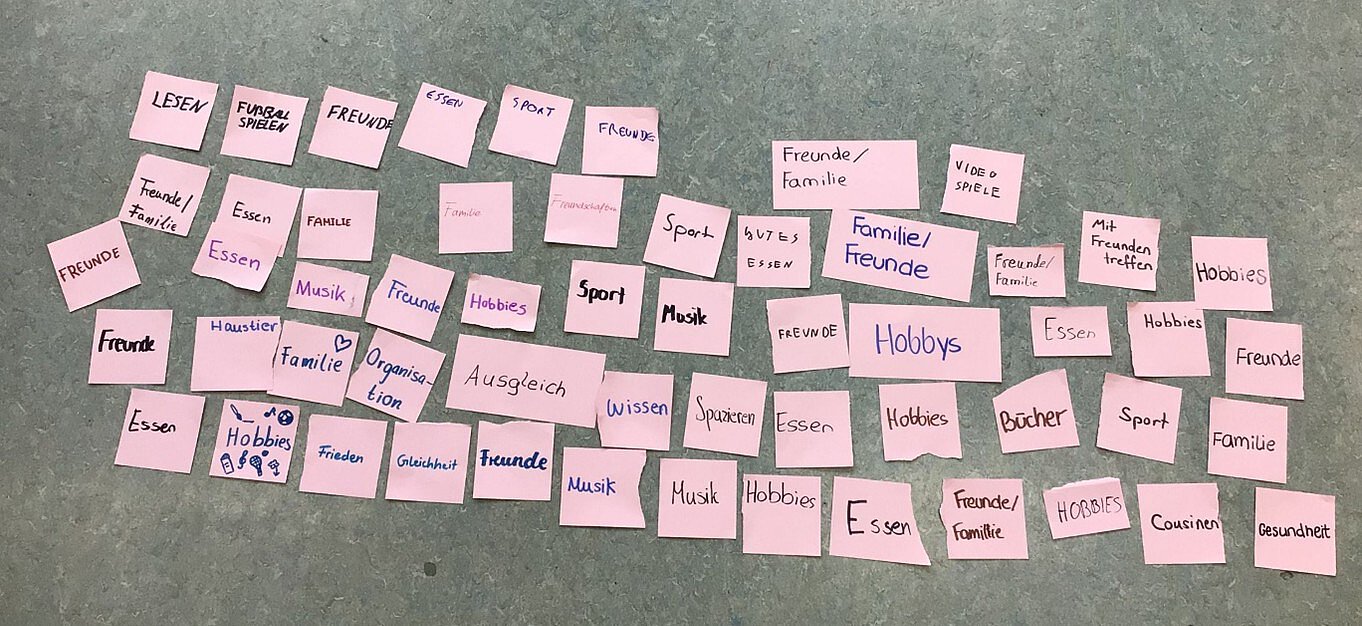 LESEN
FUßBALL
SPIELEN
FREUNDE
ESSEN
SPORT
FREUNDE
Freunde/
Familie
VIDEO
SPIELE
Freunde/
Familie
Essen
FAMILIE
Familie
Freundschaften
Sport
GUTES
ESSEN
Familie/
Freunde
Freunde/
Familie
Mit
Freunden
treffen
Hobbies
FREUNDE
Essen
Musik
Freunde
Hobbies
Sport
Musik
FREUNDE
Hobbys
Essen
Hobbies
Freunde
Freunde
Haustier
Familie
Organisa-
tion
Ausgleich
Wissen
Spazieren
Essen
Hobbies
Bücher
Sport
Familie
Essen
Hobbies
Frieden
Gleichheit
Freunde
Musik
Musik
Hobbies
Essen
Freunde/
Familie
HOBBIES
Cousinen
Gesundheit